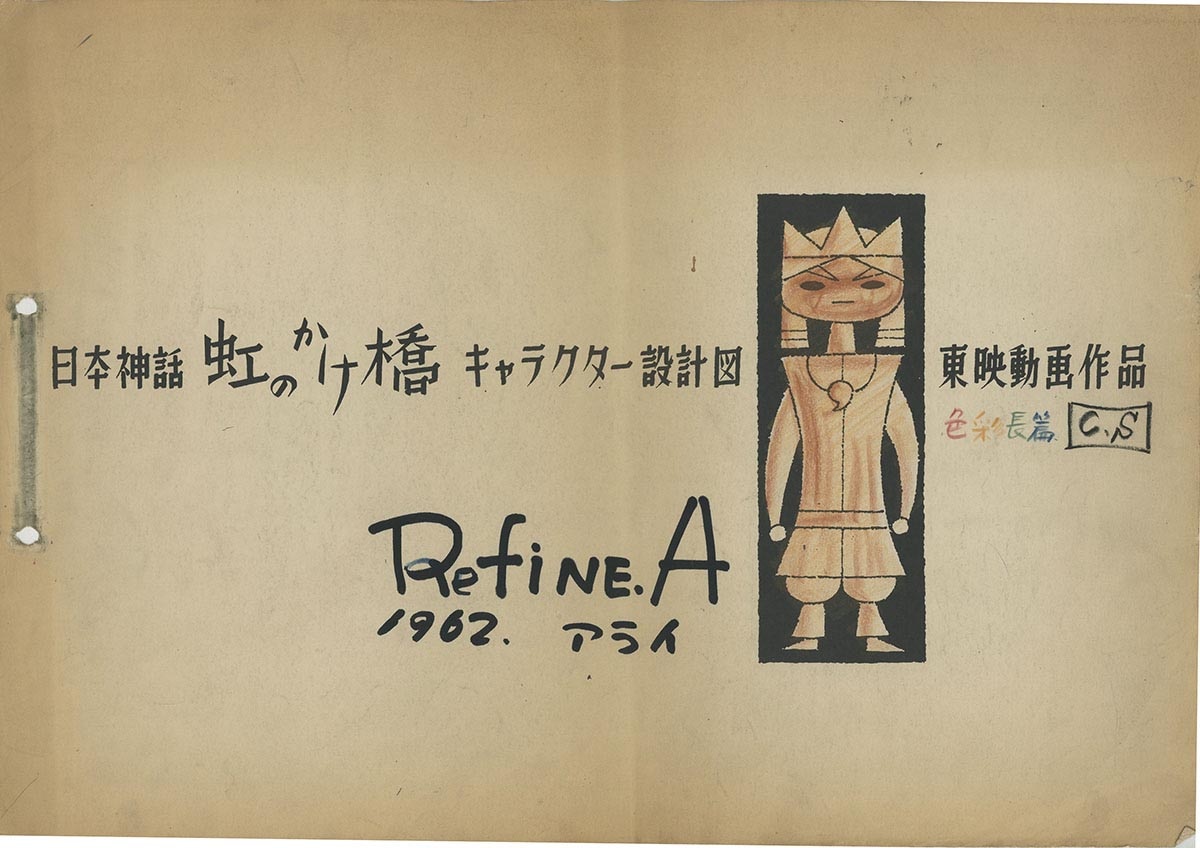 日本神話 虹のかけ橋 キャラクター設計図 東映動画作品
色彩長篇 C.S
Refine.A
1962. アライ